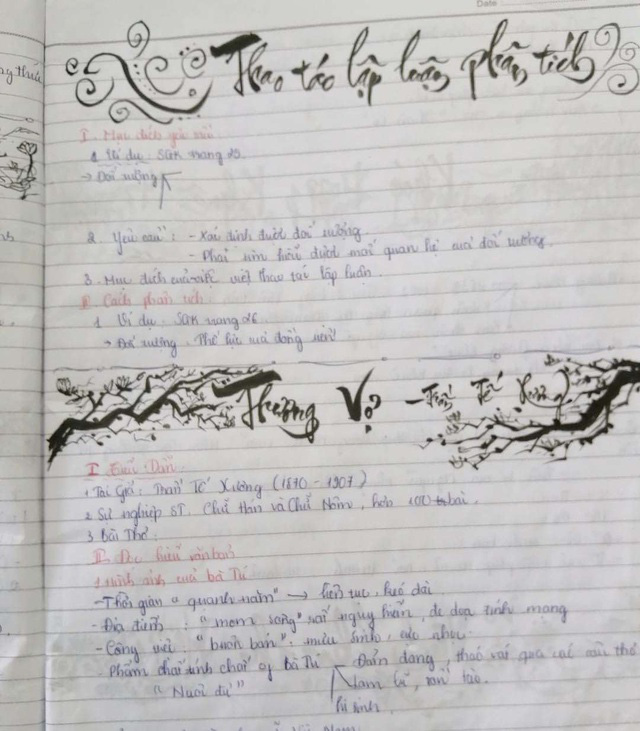 Date
Thao tác lập luận phân tích
I. Mục đích yêu cầu
1. Ví dụ: SGK trang 25.
→ Đối tượng
2. Yêu cầu: - Xác định được đối tượng.
- Phải tìm hiểu được mối quan hệ của đối tượng.
3. Mục đích của việc viết thao tác lập luận.
II. Cách phân tích
1. Ví dụ: SGK trang 26
→ Đối tượng: Thế lực của đồng tiền
Thương Vợ - Trần Tế Xương
I. Tiểu Dẫn
1. Tác Giả: Trần Tế Xương (1870 - 1907)
2. Sự nghiệp ST. Chữ Hán và Chữ Nôm, hơn 100 bài.
3. Bài Thơ:
II. Đọc hiểu văn bản
1. Hình ảnh của bà Tú
- Thời gian "quanh năm" → liên tục, kéo dài
- Địa điểm: "mom sông" rất nguy hiểm, đe dọa tính mạng
- Công việc: "buôn bán": mưu sinh, cực nhọc
Phẩm chất tính chất of bà Tú Đảm đang, tháo vát qua các câu thơ
"Nuôi đủ" lam lũ, tần tảo.
hi sinh